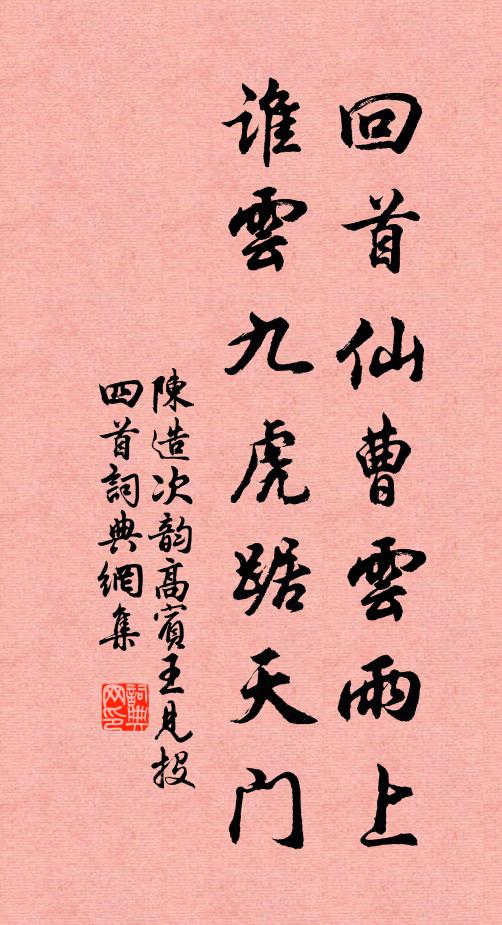 回首仙曹雲雨上
誰雲九虎踞天门
陳造次韵高賓王見投
四首詞典網集
詞典
网印